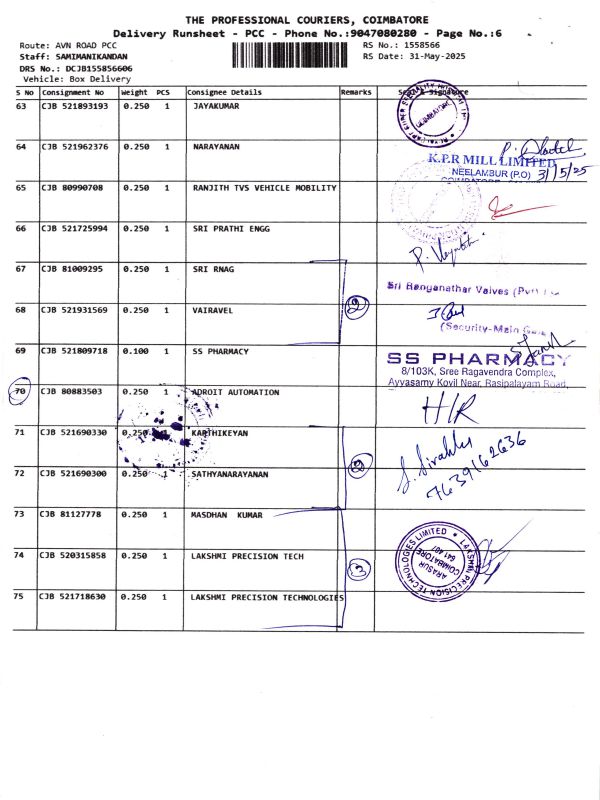 THE PROFESSIONAL COURIERS, COIMBATORE
Delivery Runsheet - PCC - Phone No.:9047080280 - Page No.:6
Route: AVN ROAD PCC
RS No.: 1558566
Staff: SAMIMANIKANDAN
RS Date: 31-May-2025
DRS No.: DCJB155856606
Vehicle: Box Delivery
S No Consignment No Weight PCS Consignee Details Remarks
63 CJB 521893193 0.250 1 JAYAKUMAR
COIMBATORE
64 CJB 521962376 0.250 1 NARAYANAN
K.P.R MILL LIMITED
NEELAMBUR (P.O) 31/5/25
65 CJB 80990708 0.250 1 RANJITH TVS VEHICLE MOBILITY
66 CJB 521725994 0.250 1 SRI PRATHI ENGG
67 CJB 81009295 0.250 1 SRI RNAG
Sri Ranganathar Valves (Pvt)
2
68 CJB 521931569 0.250 1 VAIRAVEL
(Security-Main
69 CJB 521809718 0.100 1 SS PHARMACY
SS PHARMACY
8/103K, Sree Ragavendra Complex,
Ayyasamy Kovil Near, Rasipalayam Road,
70 CJB 80883503 0.250 1 ADROIT AUTOMATION
H/R
71 CJB 521690330 0.250 1 KARTHIKEYAN
2
7639162636
72 CJB 521690300 0.250 1 SATHYANARAYANAN
73 CJB 81127778 0.250 1 MASDHAN KUMAR
74 CJB 520315858 0.250 1 LAKSHMI PRECISION TECH
3
LAKSHMI PRECISION TECHNOLOGIES LIMITED
ARASUR
COIMBATORE
641 407
75 CJB 521718630 0.250 1 LAKSHMI PRECISION TECHNOLOGIES